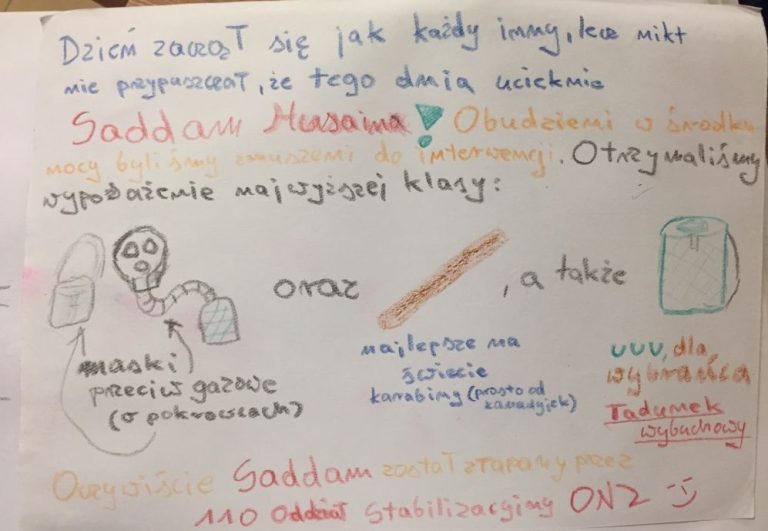 Dzień zaczął się jak każdy inny, lecz nikt
nie przypuszczał, że tego dnia ucieknie
Saddam Husaina! Obudzieni w środku
nocy byliśmy zmuszeni do interwencji. Otrzymaliśmy
wyposażenie najwyższej klasy:
oraz , a także
maski
przeciw gazowe
(w pokrowcach)
najlepsze na
świecie
karabiny (prosto od
kanadyjek)
UUU, dla
wybrańca
Ładunek
wybuchowy
Oczywiście Saddam został złapany przez
110 Oddział Stabilizacyjny ONZ :)